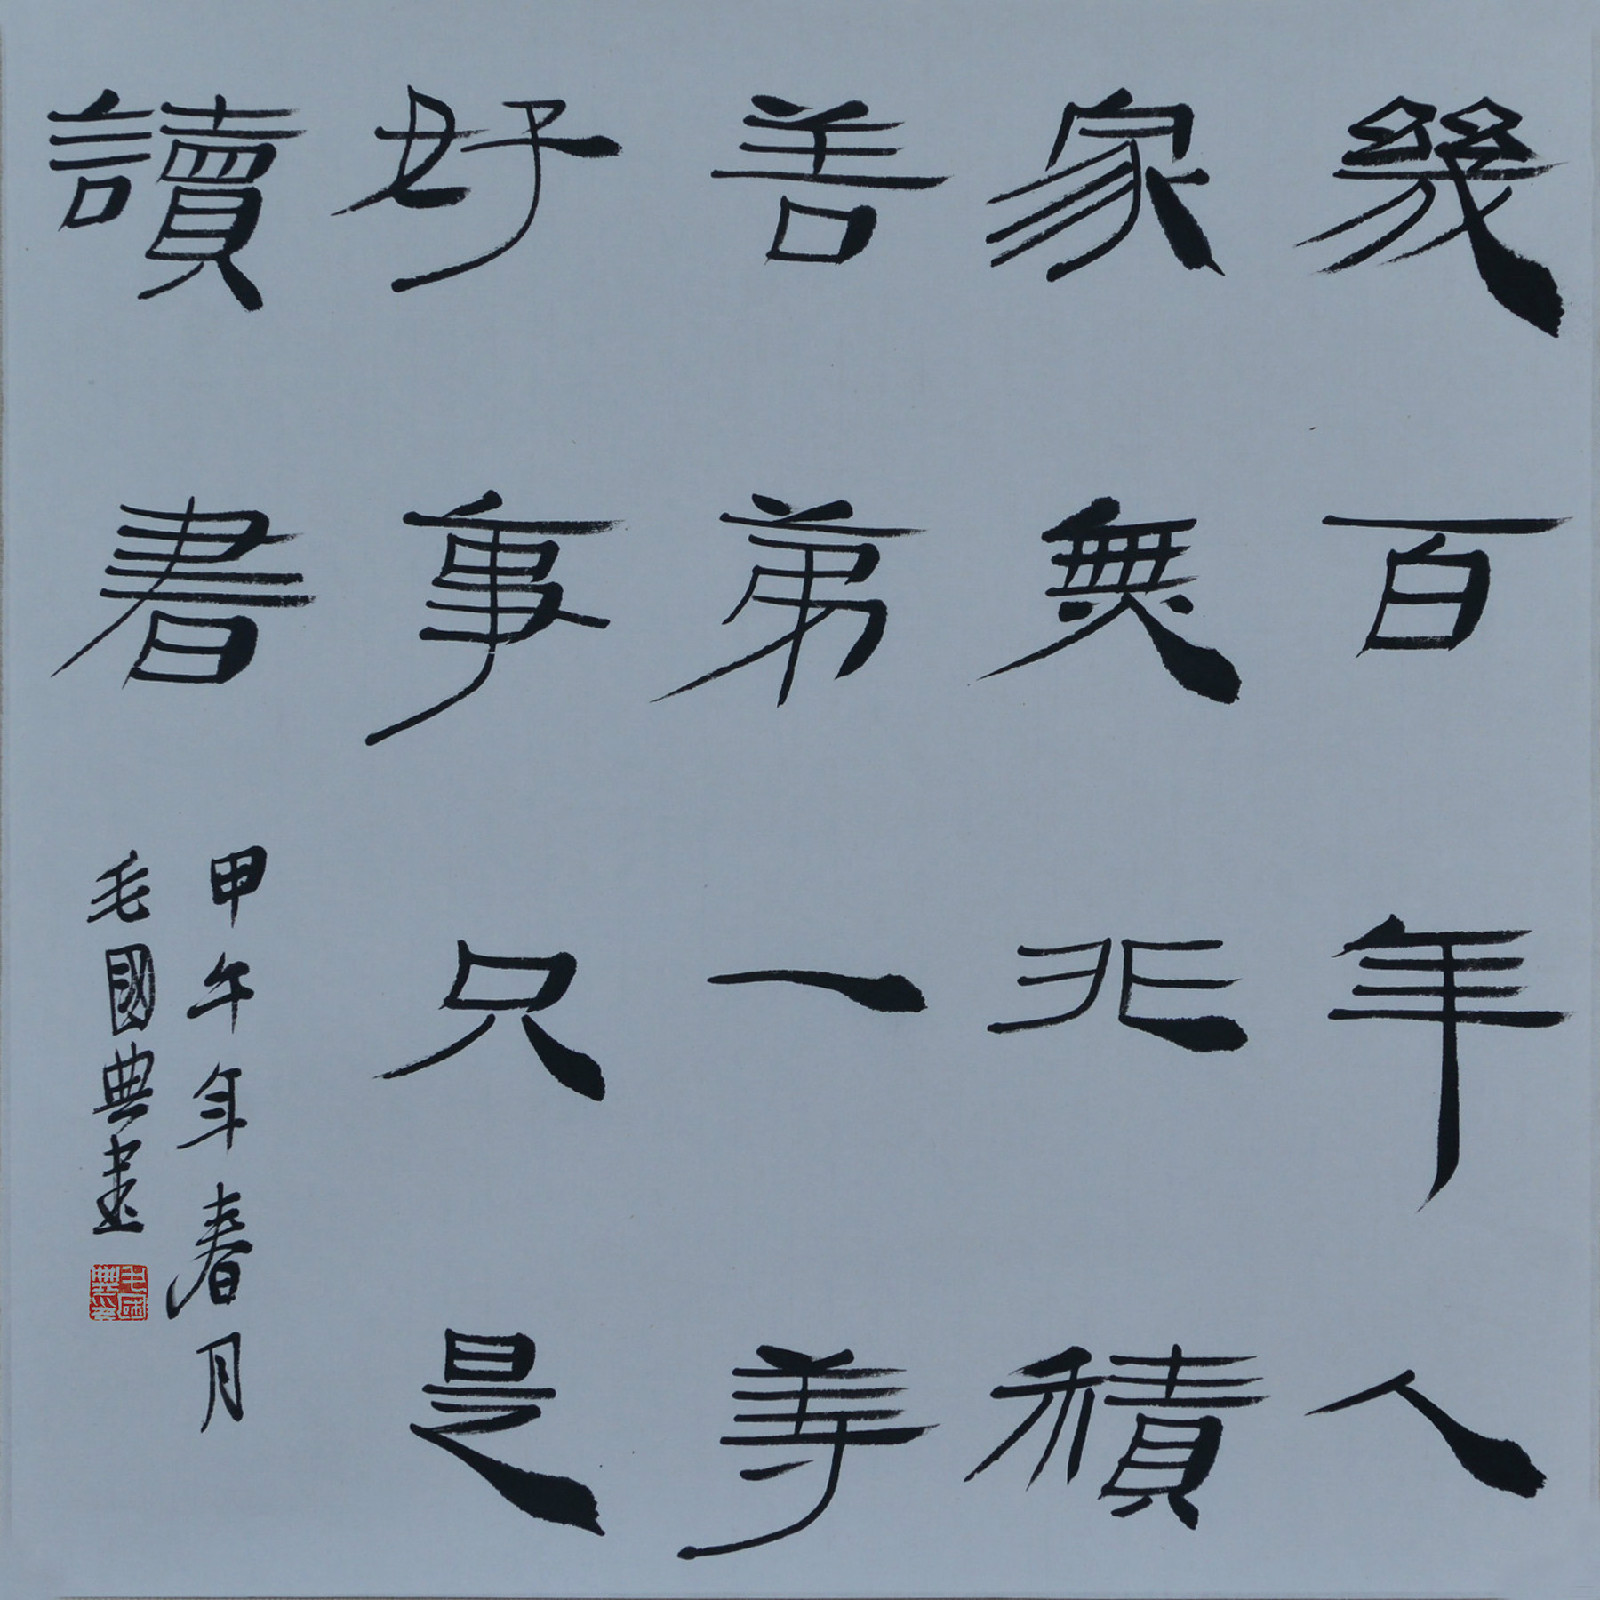 幾百年人
家無非積
善弟一等
好事只是
讀書
甲午年春月
毛國典書